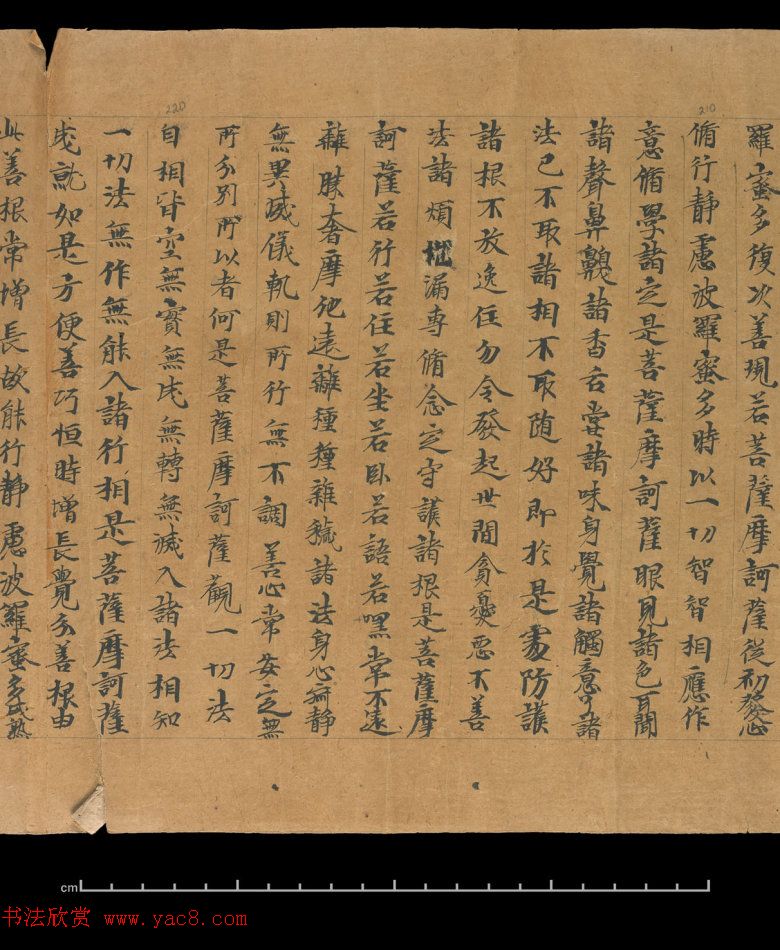 210
220
羅蜜多復次善現若菩薩摩訶薩從初發心
脩行靜慮波羅蜜多時以一切智智相應作
意脩學諸定是菩薩摩訶薩眼見諸色耳聞
諸聲鼻齅諸香舌甞諸味身覺諸觸意了諸
法已不取諸相不取随好即於是處防護
諸根不放逸住勿令發起世間貪憂惡不善
法諸煩惱漏專脩念定守護諸根是菩薩摩
訶薩若行若住若坐若臥若語若嘿常不遠
離勝奢摩他遠離種種雜穢諸法身心寂靜
無異威儀軌則所行無不調善心常安定無
所分別所以者何是菩薩摩訶薩觀一切法
自相皆空無實無成無轉無滅入諸法相知
一切法無作無能入諸行相是菩薩摩訶薩
成就如是方便善巧恒時增長覺分善根由
此善根常增長故能行靜慮波羅蜜多成熟
cm
书法欣赏 www.yac8.com